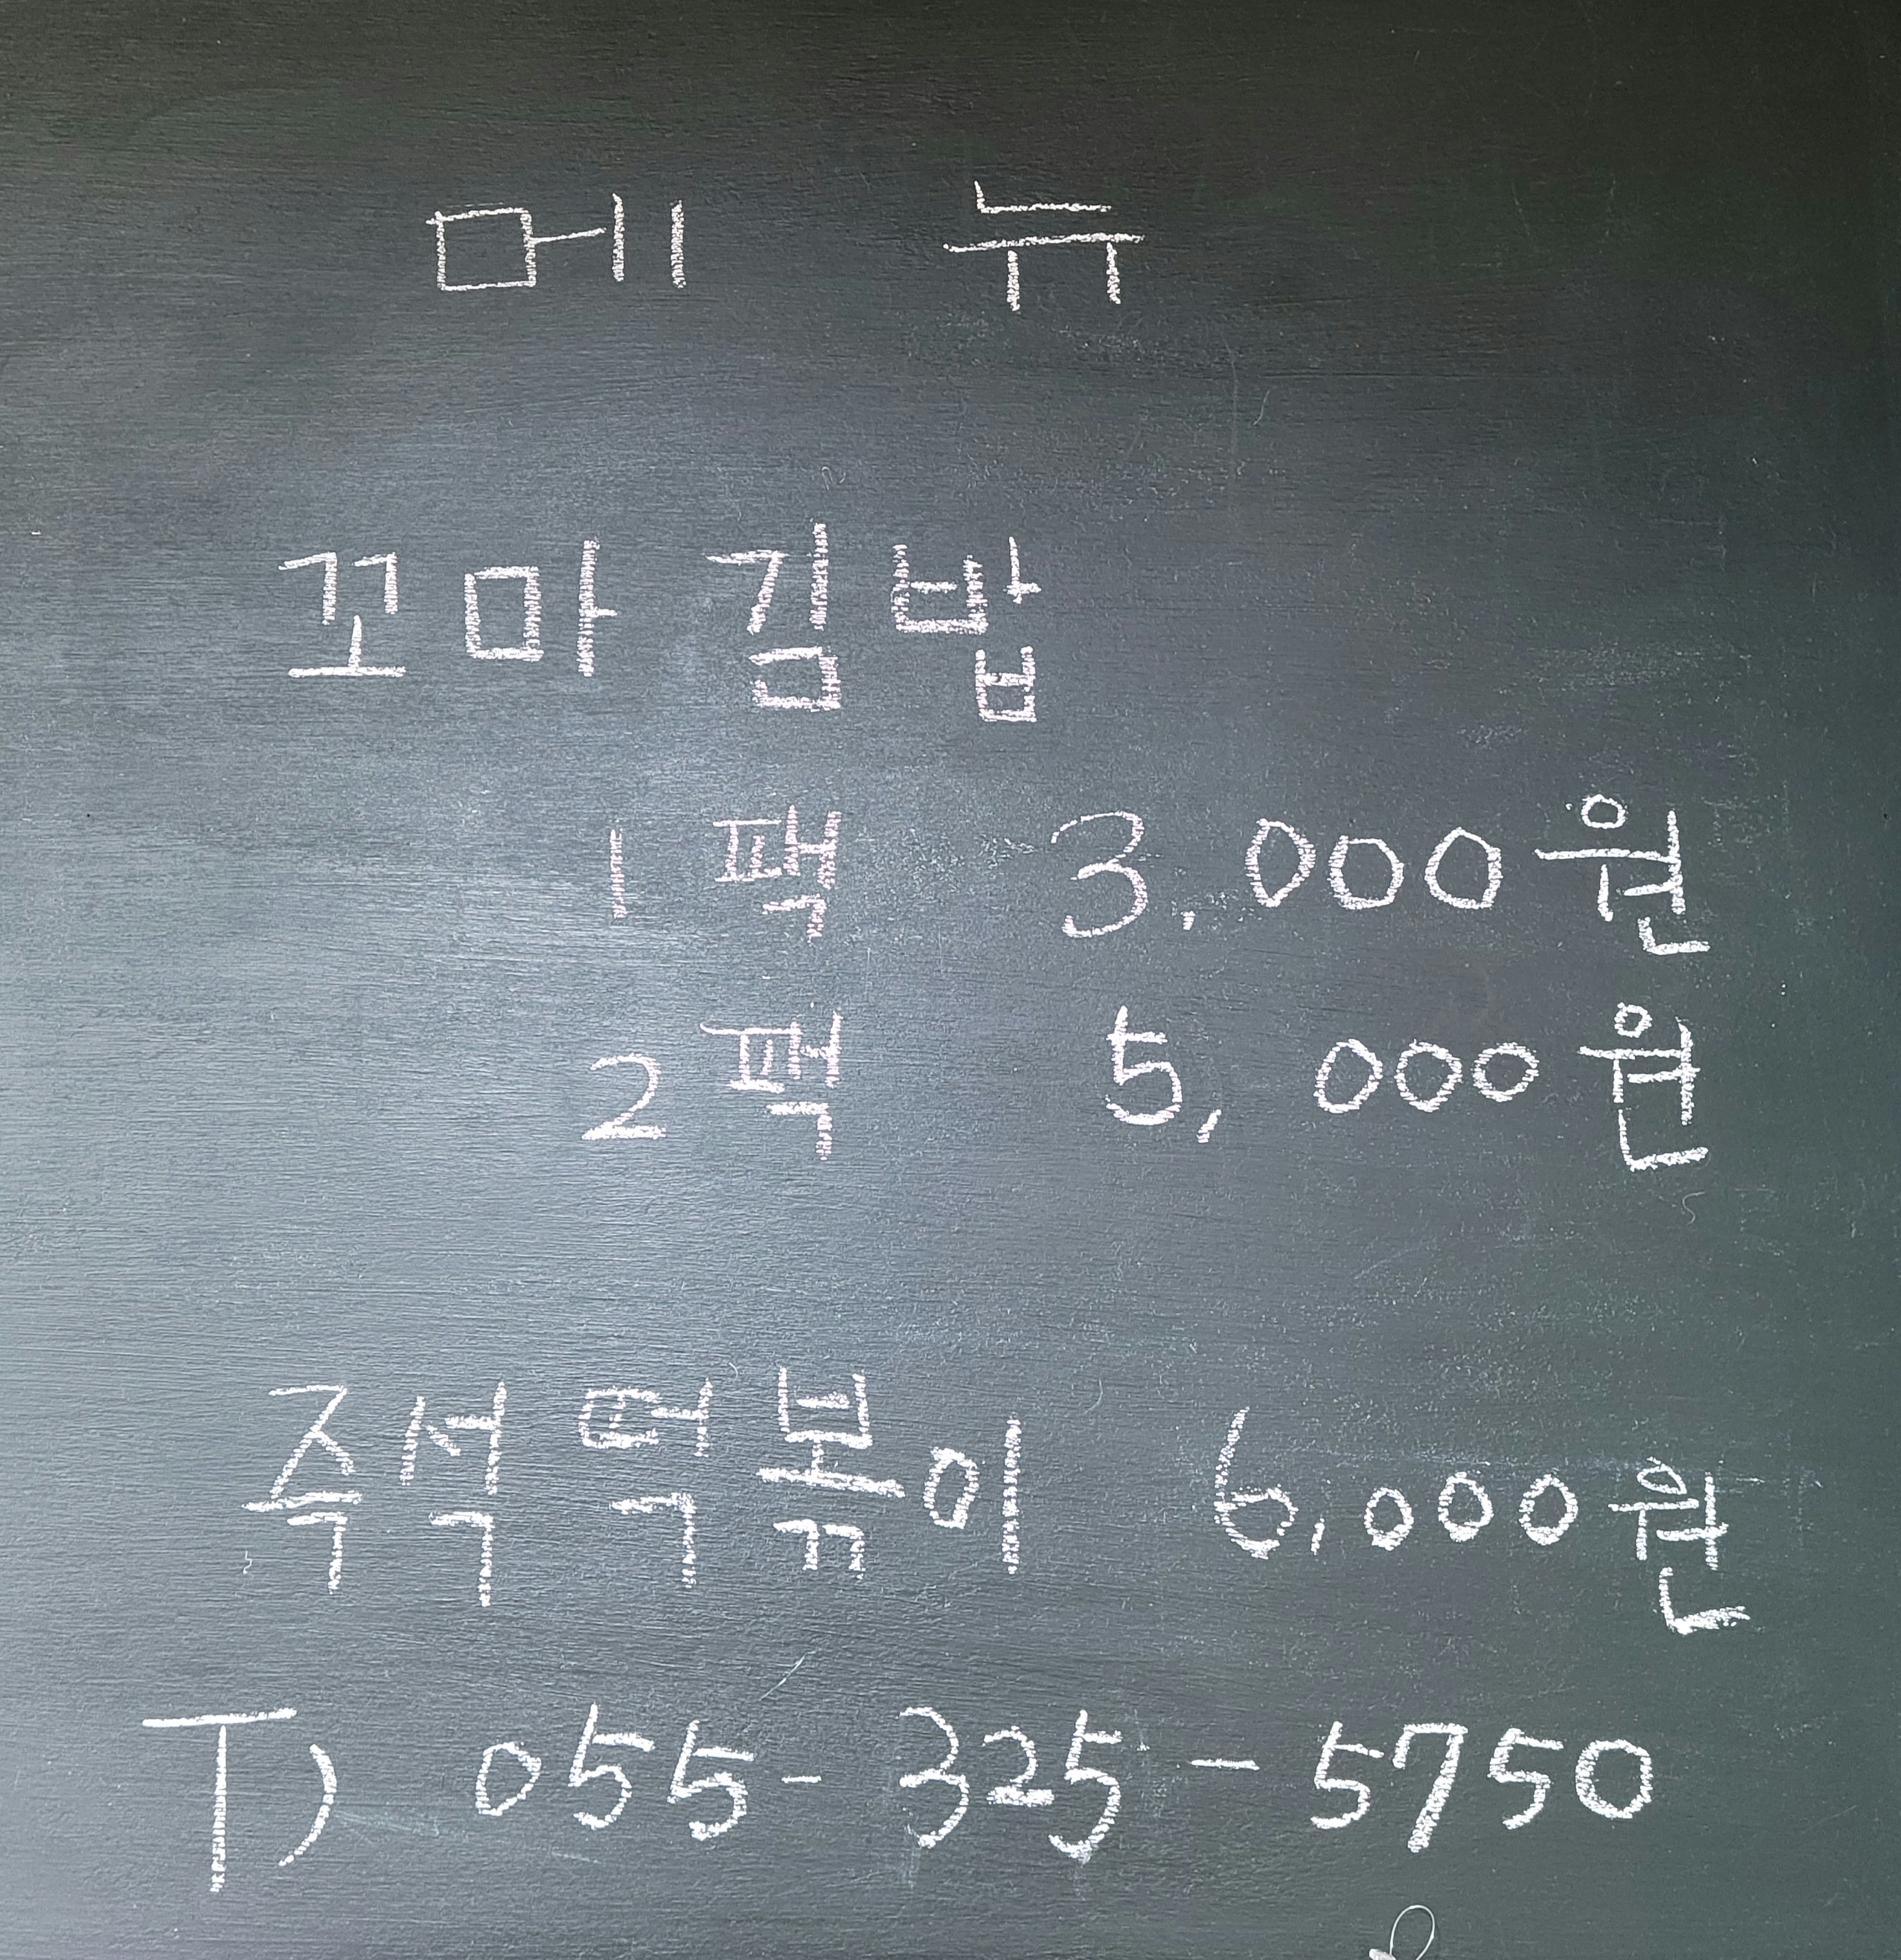 메 뉴
꼬마김밥
1팩 3,000원
2팩 5,000원
즉석떡볶이 6,000원
T) 055-325-5750